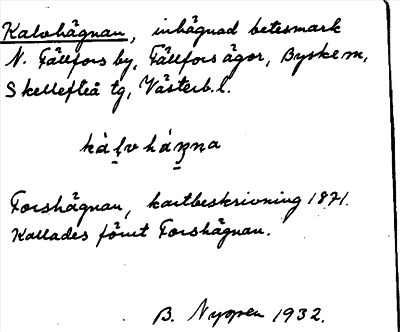 Kalvhägnan, inhägnad betesmark
N. Fällfors by, Fällfors ägor, Byske sn,
Skellefteå tg, Västerb. l.
kálv háŋna
Forshägnan, kartbeskrivning 1871.
Kallades förut Forshägnan.
B. 1932.